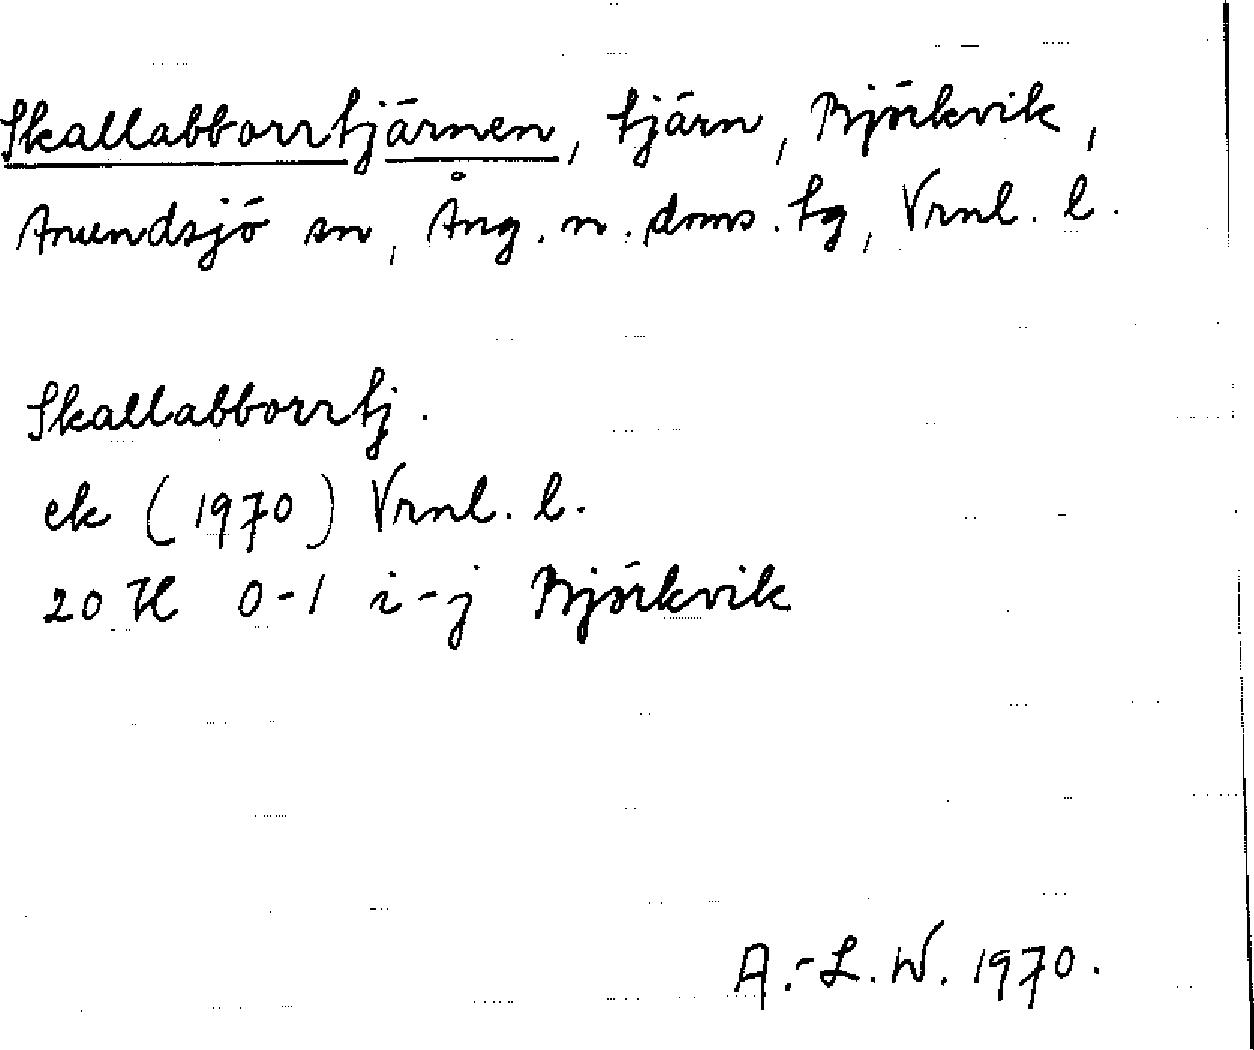 Skallabborrtjärnen, tjärn, Björkvik,
Anundsjö sn, Ång. n. doms. tg, Vrnl. l.
Skallabborrtj.
ek (1970) Vrnl. l.
20 H 0-1 i-j Björkvik
A.-L. W. 1970.